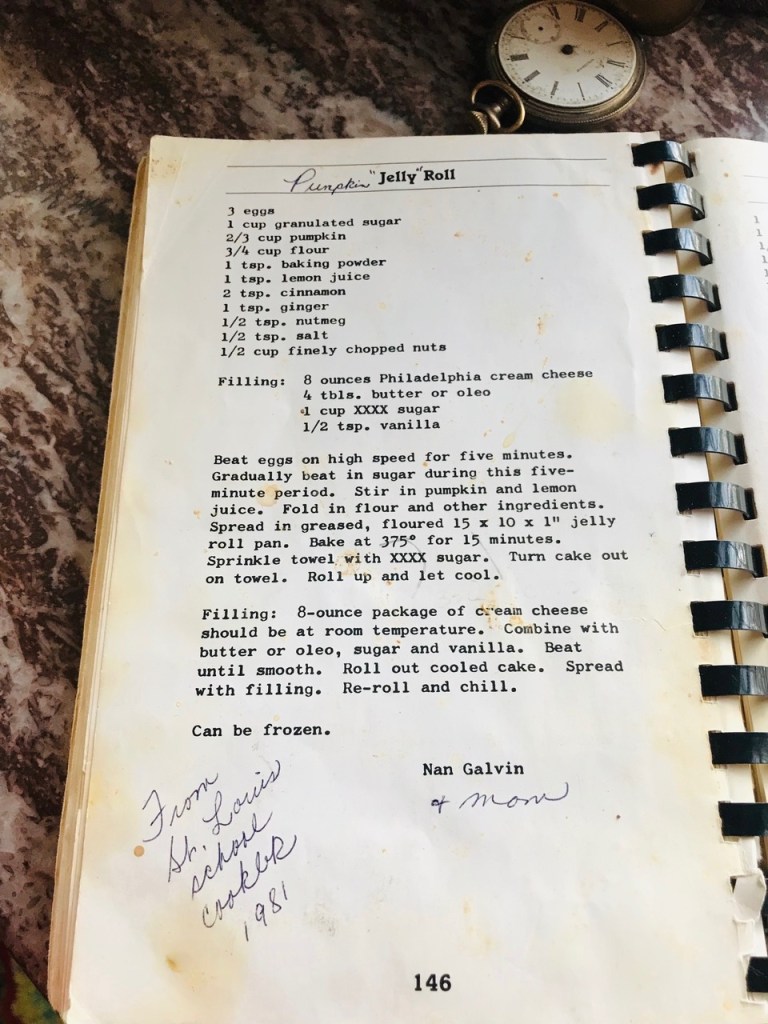 Pumpkin "Jelly" Roll
3 eggs
1 cup granulated sugar
2/3 cup pumpkin
3/4 cup flour
1 tsp. baking powder
1 tsp. lemon juice
2 tsp. cinnamon
1 tsp. ginger
1/2 tsp. nutmeg
1/2 tsp. salt
1/2 cup finely chopped nuts
Filling: 8 ounces Philadelphia cream cheese
4 tbls. butter or oleo
1 cup XXXX sugar
1/2 tsp. vanilla
Beat eggs on high speed for five minutes.
Gradually beat in sugar during this five-
minute period. Stir in pumpkin and lemon
juice. Fold in flour and other ingredients.
Spread in greased, floured 15 x 10 x 1" jelly
roll pan. Bake at 375° for 15 minutes.
Sprinkle towel with XXXX sugar. Turn cake out
on towel. Roll up and let cool.
Filling: 8-ounce package of cream cheese
should be at room temperature. Combine with
butter or oleo, sugar and vanilla. Beat
until smooth. Roll out cooled cake. Spread
with filling. Re-roll and chill.
Can be frozen.
Nan Galvin
& Mom
From
St. Louis
school
cookbk
1981
146